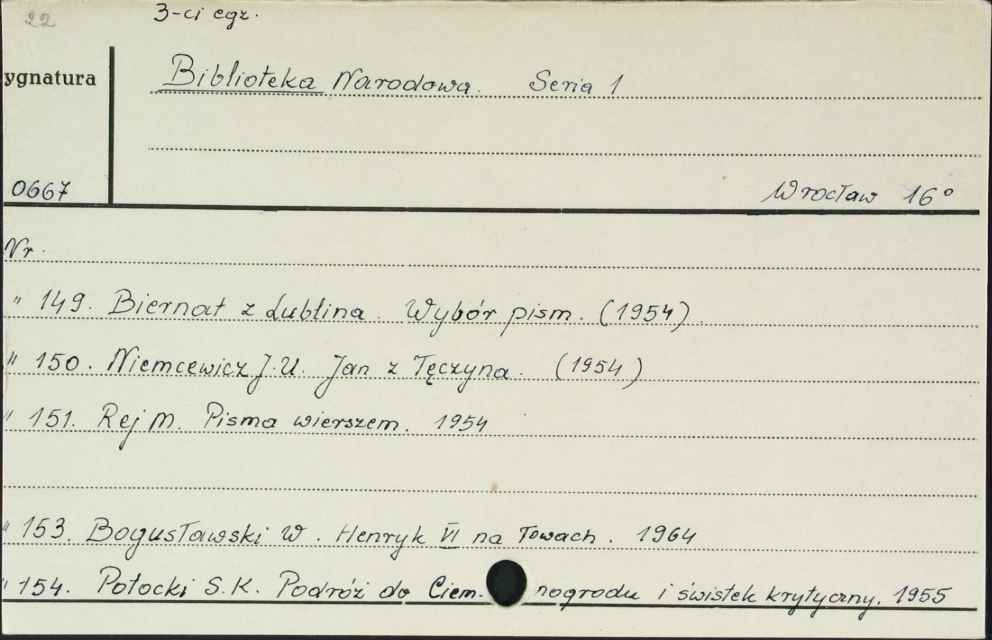 22 3-ci egz.
ygnatura Biblioteka Narodowa. Seria 1
0667 Wrocław 16°
Nr.
" 149. Biernat z Lublina. Wybór pism. (1954)
" 150. Niemcewicz J.U. Jan z Tęczyna. (1954)
" 151. Rej M. Pisma wierszem. 1954
" 153. Bogusławski W. Henryk VI na Łowach. 1964
" 154. Potocki S.K. Podróż do Ciem. nogrodu i świstek krytyczny. 1955